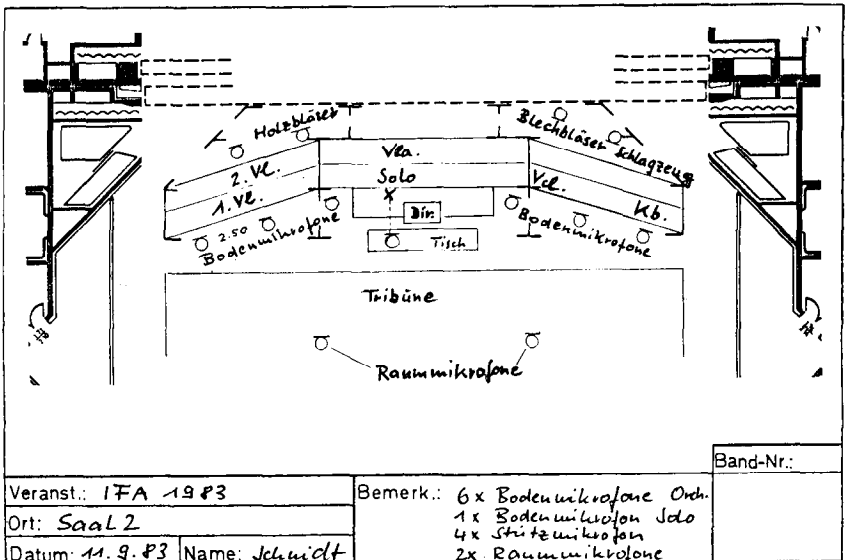 Holzbläser
Blechbläser Schlagzeug
2. Vl.
Vla.
1. Vl.
Solo
Vcl.
Kb.
Dir.
2.50
Bodenmikrofone
Bodenmikrofone
Tisch
Tribüne
Raummikrofone
Band-Nr.:
Veranst.: IFA 1983
Ort: Saal 2
Datum: 11.9.83 Name: Schmidt
Bemerk.: 6x Bodenmikrofone Orch.
1x Bodenmikrofon Solo
4x Stützmikrofon
2x Raummikrofone